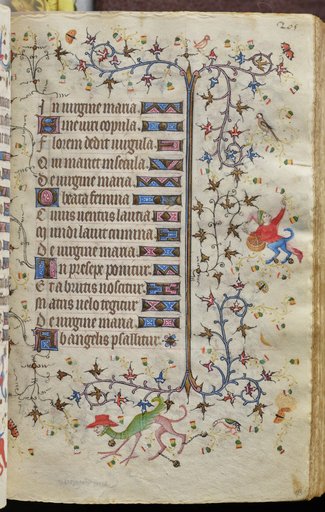 In virgine maria.
Sine viri copula.
Florem dedit virgula.
Qui manet in secula.
De virgine maria.
O beata femina
Cuius ventris
Mundi lavit crimina
De virgine maria.
In presepe ponitur.
Et a brutis noscitur.
Matris velo tegitur
De virgine maria.
Ab angelis psallitur.